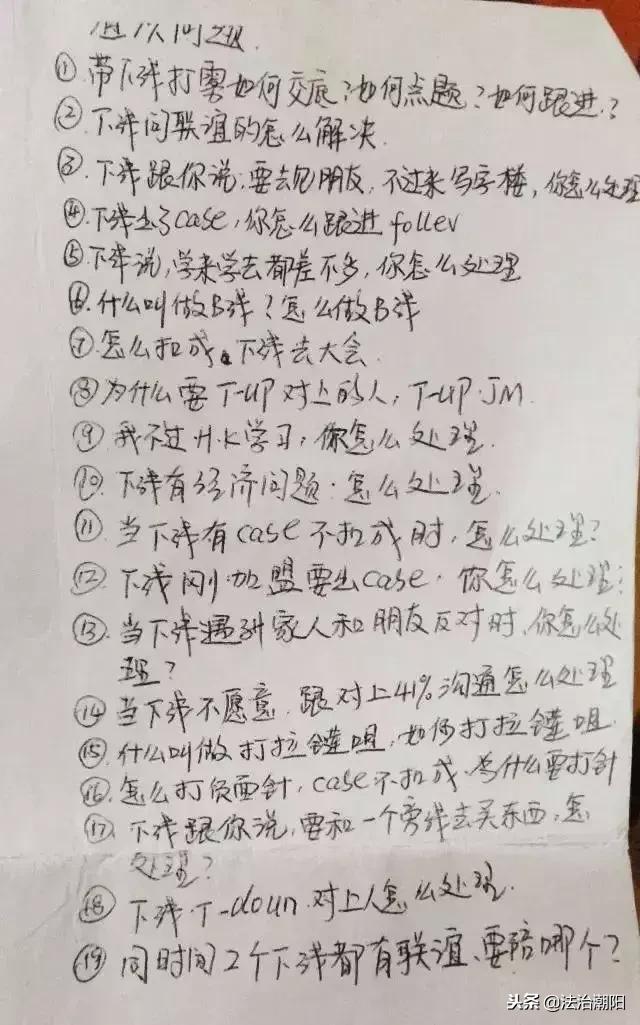 ①带下线打雾如何交底?如何点题?如何跟进?
②下线问联谊的怎么解决.
③.下线跟你说:要去见朋友,不过来写字楼,你怎么处理
④下线出了case,你怎么跟进follev
⑤下线说,学来学去都差不多,你怎么处理
⑥.什么叫做B线?怎么做B线
⑦.怎么扣成 下线去大会.
⑧为什么要T-up对上的人,T-up.JM.
⑨我不过H.K学习,你怎么处理.
⑩.下线有经济问题:怎么处理.
⑪当下线有case不扣成时,怎么处理?
⑫下线刚加盟要出case.你怎么处理?
⑬当下线遇到家人和朋友反对时,你怎么处
理?
⑭当下线不愿意.跟对上41%沟通怎么处理
⑮.什么叫做打拉链咀,如何打拉链咀.
⑯.怎么打负面针,case不扣成.为什么要打针
⑰.下线跟你说,要和一个旁线去买东西,怎
处理?
⑱下线.T-doun.对上人怎么处理.
⑲同时间2个下线都有联谊、要陪哪个?
头条@法治潮阳